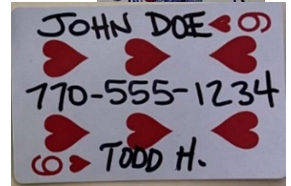 JOHN DOE
6
770-555-1234
6
TODD H.